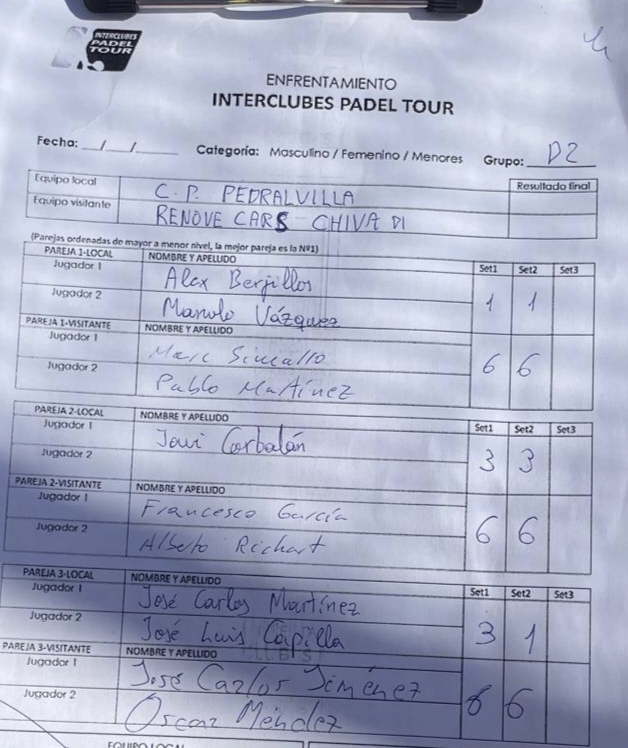 INTERCLUBES
PADEL
TOUR
ENFRENTAMIENTO
INTERCLUBES PADEL TOUR
Fecha: __/__/____ Categoría: Masculino / Femenino / Menores Grupo: D2
Equipo local C.P. PEDRALVILLA Resultado final
Equipo visitante RENOVE CARS CHIVA D1
(Parejas ordenadas de mayor a menor nivel, la mejor pareja es la Nº1)
PAREJA 1-LOCAL NOMBRE Y APELLIDO Set1 Set2 Set3
Jugador 1 Alex Berjillos
Jugador 2 Manolo Vázquez 1 1
PAREJA 1-VISITANTE NOMBRE Y APELLIDO
Jugador 1 Marc 6 6
Jugador 2 Pablo Martínez
PAREJA 2-LOCAL NOMBRE Y APELLIDO Set1 Set2 Set3
Jugador 1 Javi Corbalán
Jugador 2 3 3
PAREJA 2-VISITANTE NOMBRE Y APELLIDO
Jugador 1 Francesco García
Jugador 2 Alberto Richart 6 6
PAREJA 3-LOCAL NOMBRE Y APELLIDO Set1 Set2 Set3
Jugador 1 José Carlos Martínez
Jugador 2 José Luis Capilla 3 1
PAREJA 3-VISITANTE NOMBRE Y APELLIDO
Jugador 1 José Carlos Jiménez
Jugador 2 Óscar Méndez 6 6
EQUIPO LOCAL